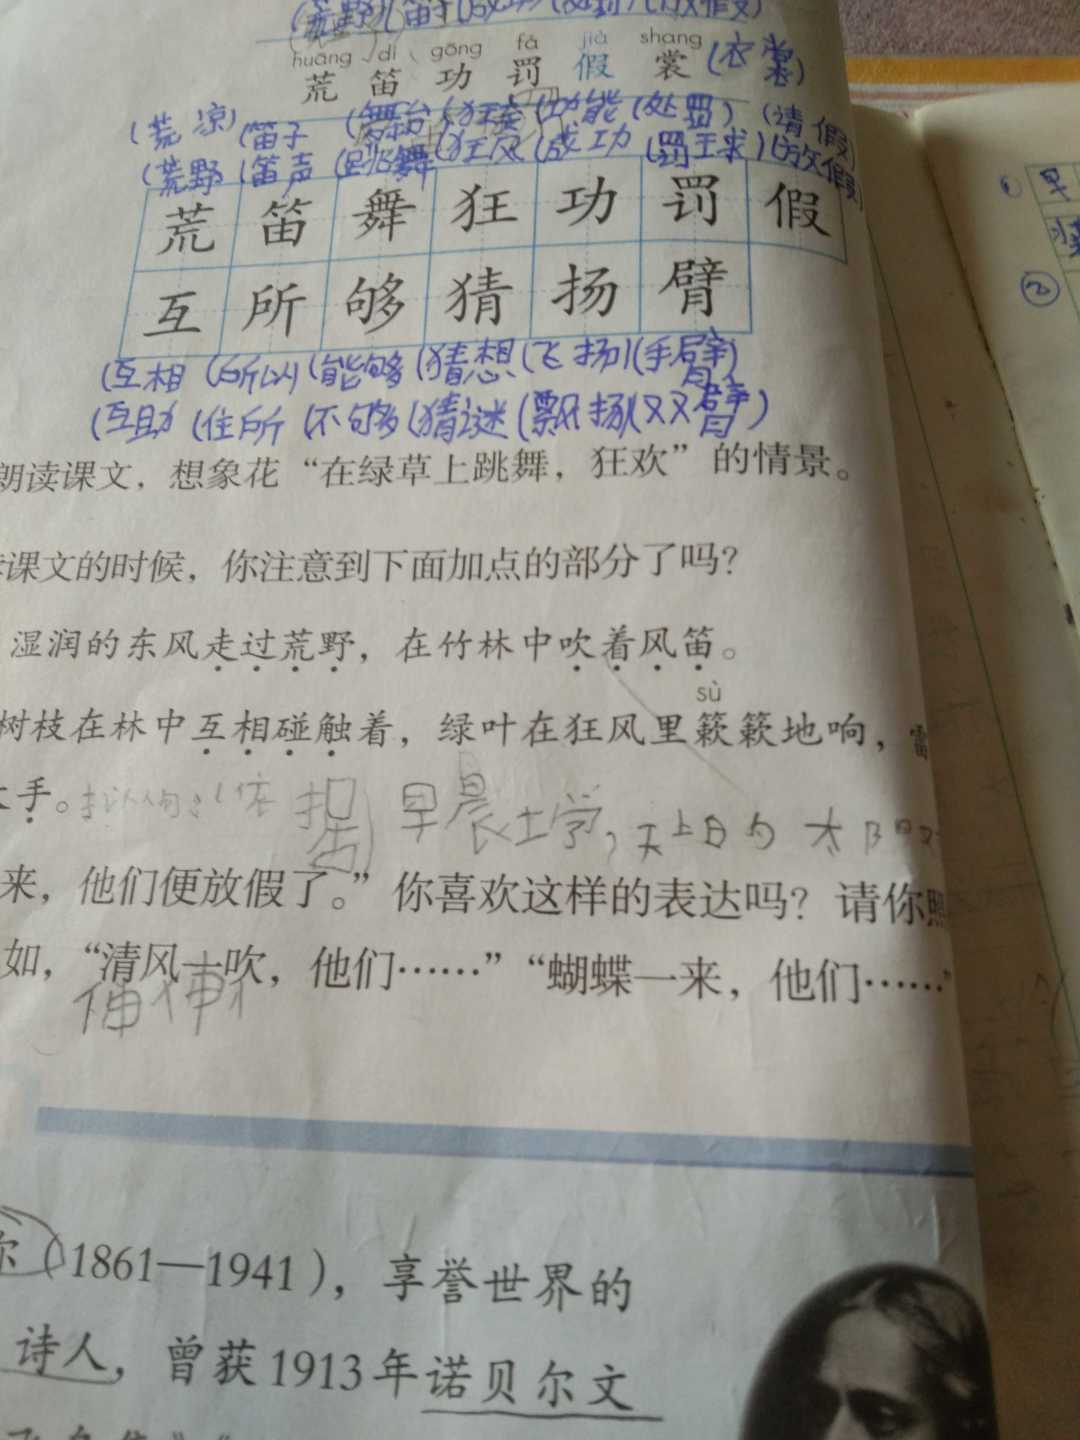 (荒野)(笛子)(成功)(处罚)(放假)
huāng dí gōng fá jià shang
荒 笛 功 罚 假 裳 (衣裳)
(荒凉) (笛子 (舞台 (狂奏 (功能 (处罚) (请假)
(荒野 (笛声 (跳舞 (狂风 (成功 (罚王求) (放假)
荒 笛 舞 狂 功 罚 假
互 所 够 猜 扬 臂
(互相 (所以 (能够 (猜想 (飞扬)(手臂)
(互助 (住所 (不够 (猜谜 (飘扬 (双臂)
朗读课文，想象花“在绿草上跳舞，狂欢”的情景。
课文的时候，你注意到下面加点的部分了吗？
湿润的东风走过荒野，在竹林中吹着风笛。
sù
树枝在林中互相碰触着，绿叶在狂风里簌簌地响，雷
大手。
早晨上学，天上日的太阳
来，他们便放假了。”你喜欢这样的表达吗？请你照
如，“清风一吹，他们……”“蝴蝶一来，他们……”
尔（1861—1941），享誉世界的
诗人，曾获1913年诺贝尔文